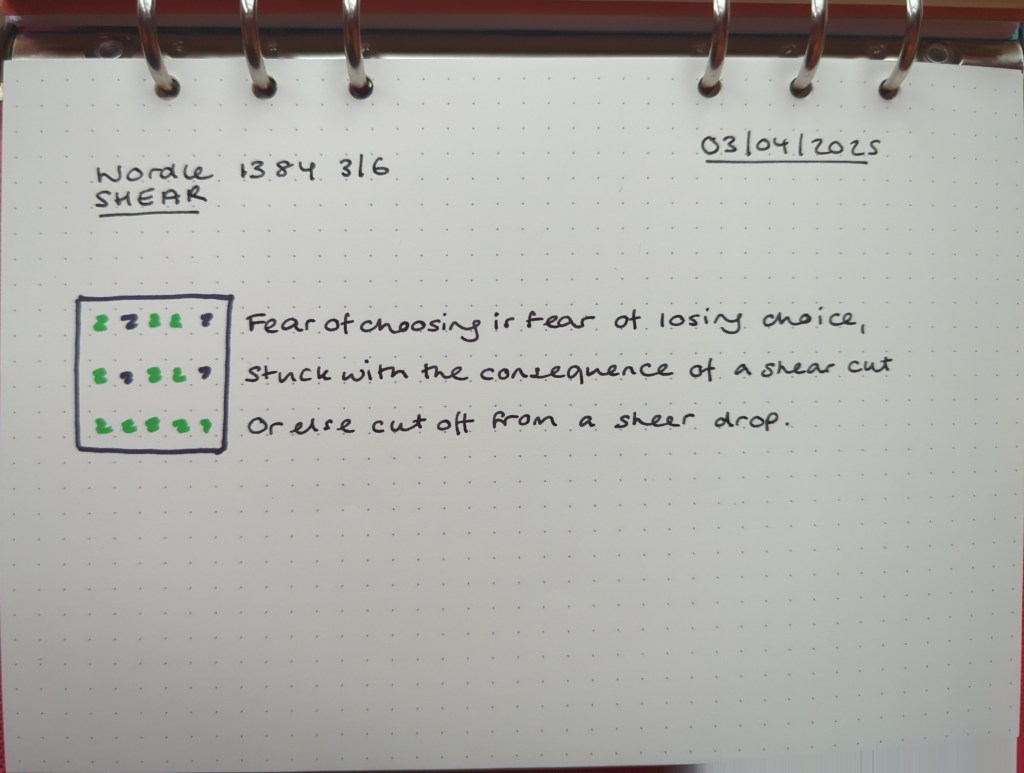 03/04/2025
Wordle 1384 3/6
SHEAR
Fear of choosing is fear of losing choice,
Stuck with the consequence of a shear cut
Or else cut off from a sheer drop.